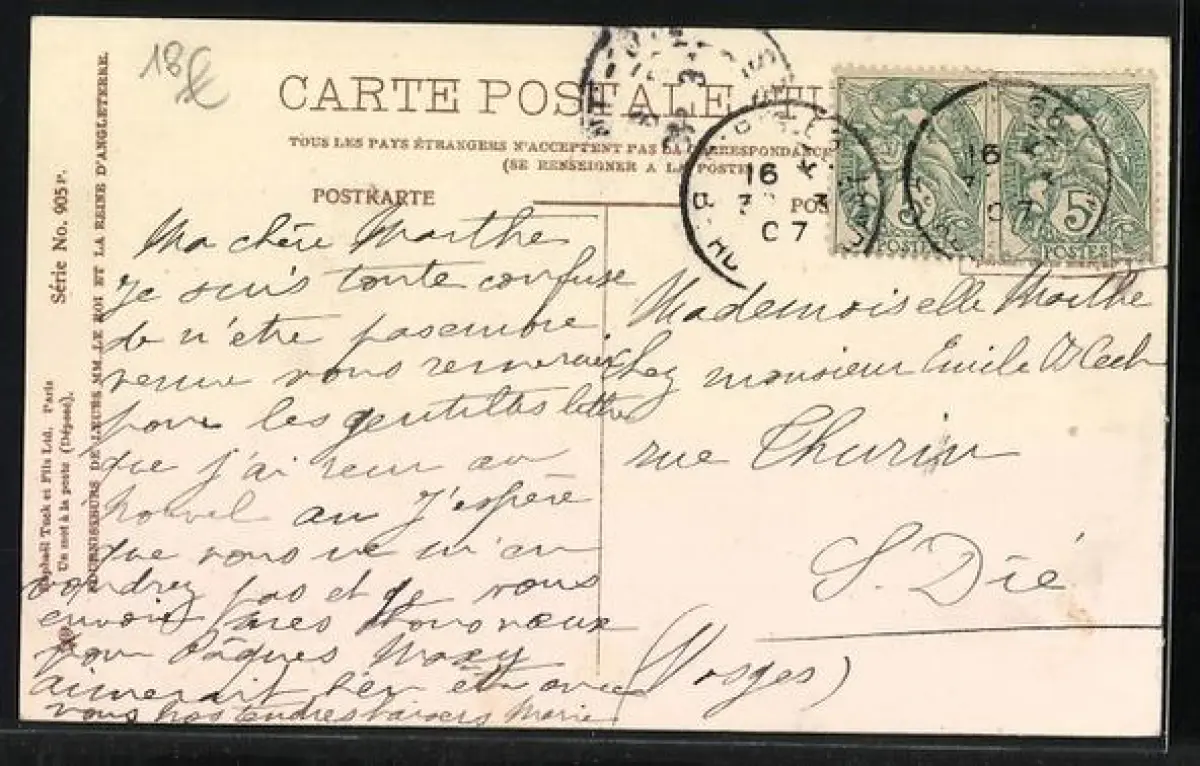 18£
CARTE POSTALE
TOUS LES PAYS ÉTRANGERS N'ACCEPTENT PAS LA CORRESPONDANCE
(SE RENSEIGNER A LA POSTE)
POSTKARTE
POS
16
3
07
16
07
5
POSTES
POSTES
Raphaël Tuck et Fils Ltd. Paris Série No. 905 P.
Un mot à la poste (Déposé).
FOURNISSEURS DE LEURS MM. LE ROI ET LA REINE D'ANGLETERRE.
Ma chère Marthe
Je suis toute confuse
de n'être pas encore
venue vous remercier
pour les gentilles lettres
que j'ai reçu au
nouvel an J'espère
que vous ne m'en
voudrez pas et je vous
envoie mes bons vœux
pour Pâques
aimerait bien être avec
vous nos tendres baisers Marie
Mademoiselle Marthe
chez monsieur Emile Blech
rue Thurin
S. Dié
(Vosges)